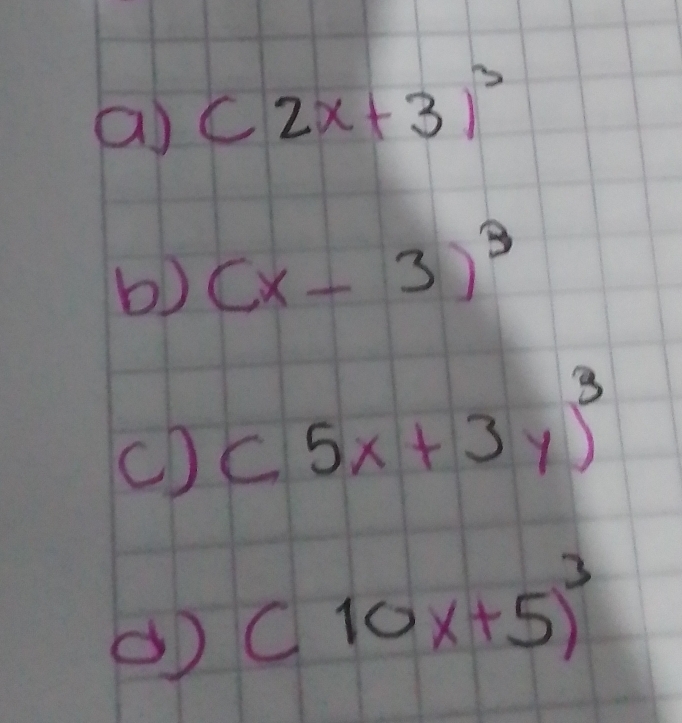 a) (2x+3)³
b) (x-3)³
c) (5x+3y)³
d) (10x+5)³